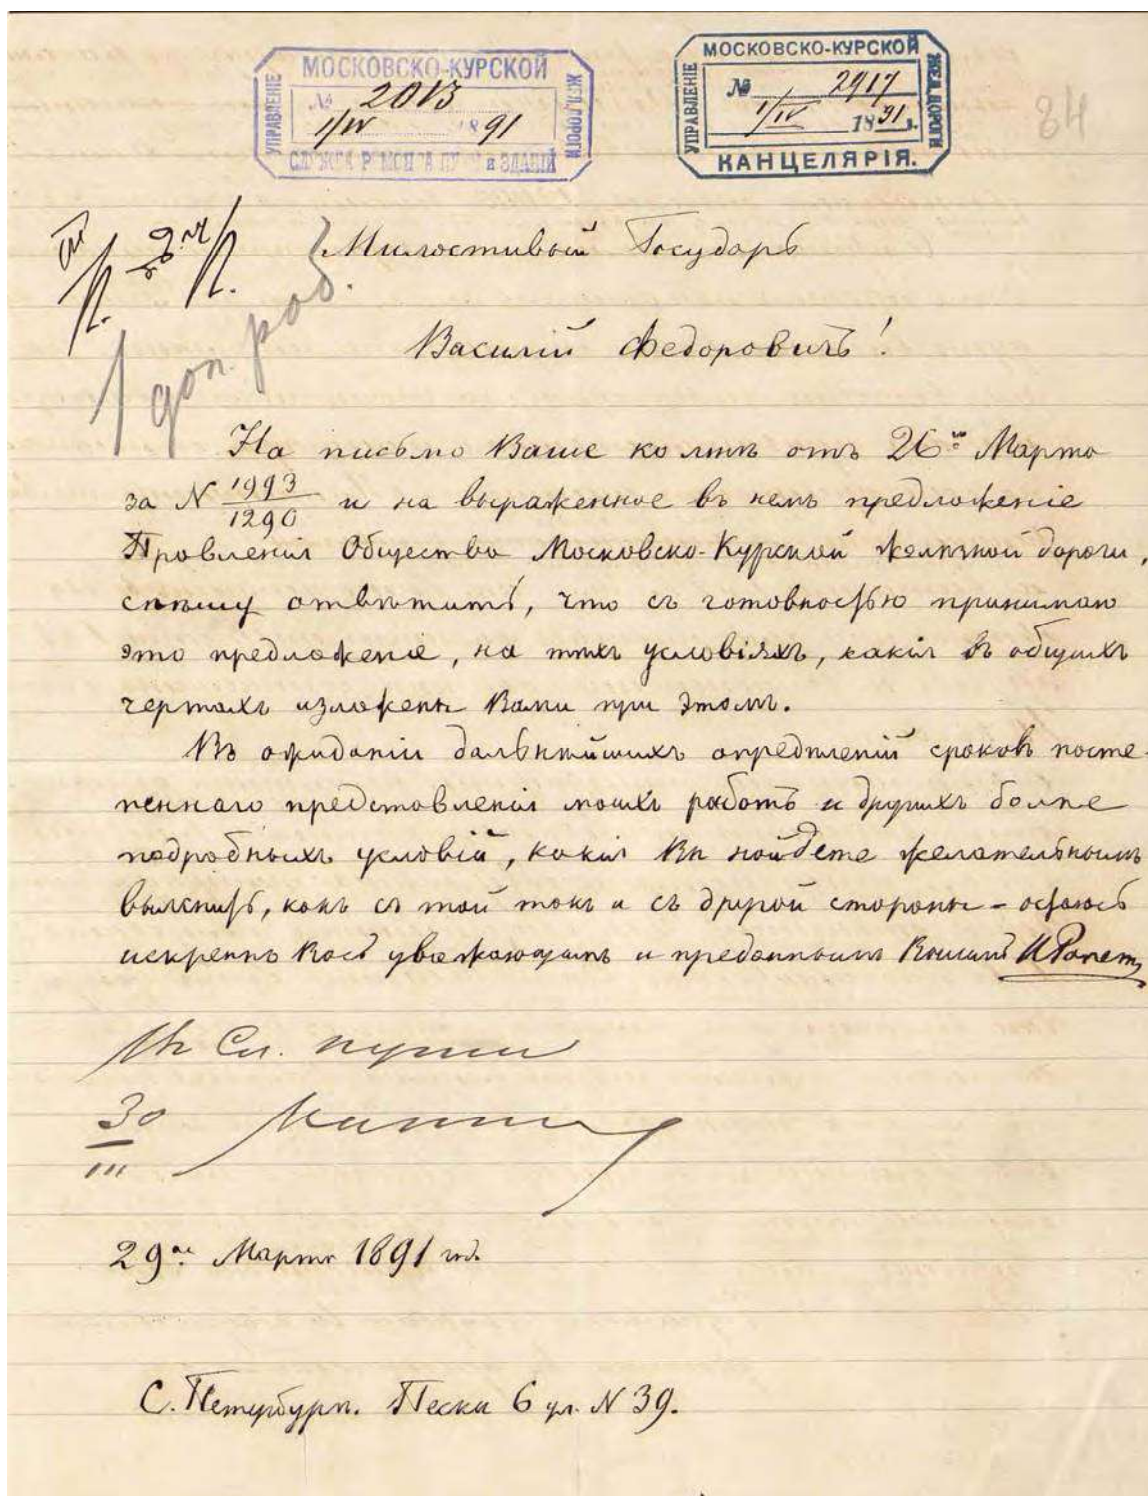 УПРАВЛЕНІЕ МОСКОВСКО-КУРСКОЙ ЖЕЛ. ДОРОГИ
№ 2013
1/IV 1891
СЛУЖБА РЕМОНТА ПУТИ и ЗДАНІЙ
УПРАВЛЕНІЕ МОСКОВСКО-КУРСКОЙ ЖЕЛ. ДОРОГИ
№ 2917
1/IV 1891 г.
КАНЦЕЛЯРІЯ.
84
Милостивый Государь
Василій Федоровичъ!
1 доп. раб.
На письмо Ваше ко мнѣ отъ 26го Марта
за N 1993/1290 и на выраженное въ немъ предложеніе
Правленія Общества Московско-Курской желѣзной дороги,
спѣшу отвѣтить, что съ готовностью принимаю
это предложеніе, на тѣхъ условіяхъ, какія въ общихъ
чертахъ изложены Вами при этомъ.
Въ ожиданіи дальнѣйшихъ опредѣленій сроковъ посте-
пеннаго представленія моихъ работъ и другихъ болѣе
подробныхъ условій, какія Вы найдете желательнымъ
выяснить, какъ съ той такъ и съ другой стороны – остаюсь
искренно Васъ уважающимъ и преданнымъ Вашимъ И Ропетъ
Въ Сл. пути
30/III
29го Марта 1891 год.
С. Петербургъ. Пески 6 ул. N 39.